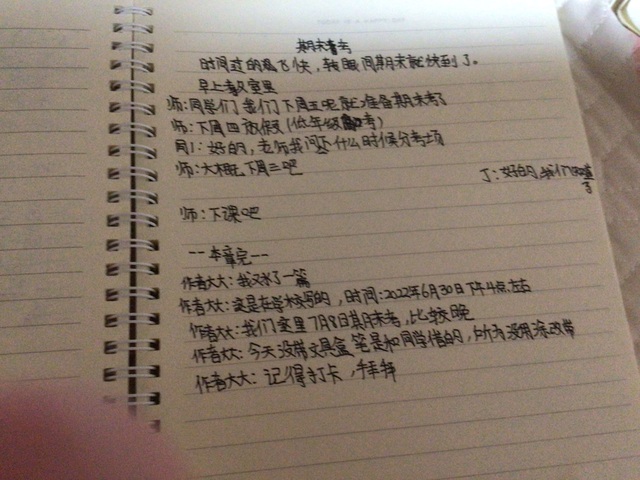 期末考考
时间过的飞快，转眼间期末就快到了。
早上教室里
师:同学们 我们下周五呢就准备期末考了
师:下周四放假(低年级考)
同1:好的，老师我问下什么时候分考场
师:大概下周三吧
丁:好的，我们知道
了
师:下课吧
--本章完--
作者大大:我又水了一篇
作者大大:这是在学校写的，时间:2022年6月30日下午4点左右
作者大大:我们这里7月8日期末考，比较晚
作者大大:今天没带文具盒 笔是和同学借的，所有没用涂改带
作者大大:记得打卡，拜拜